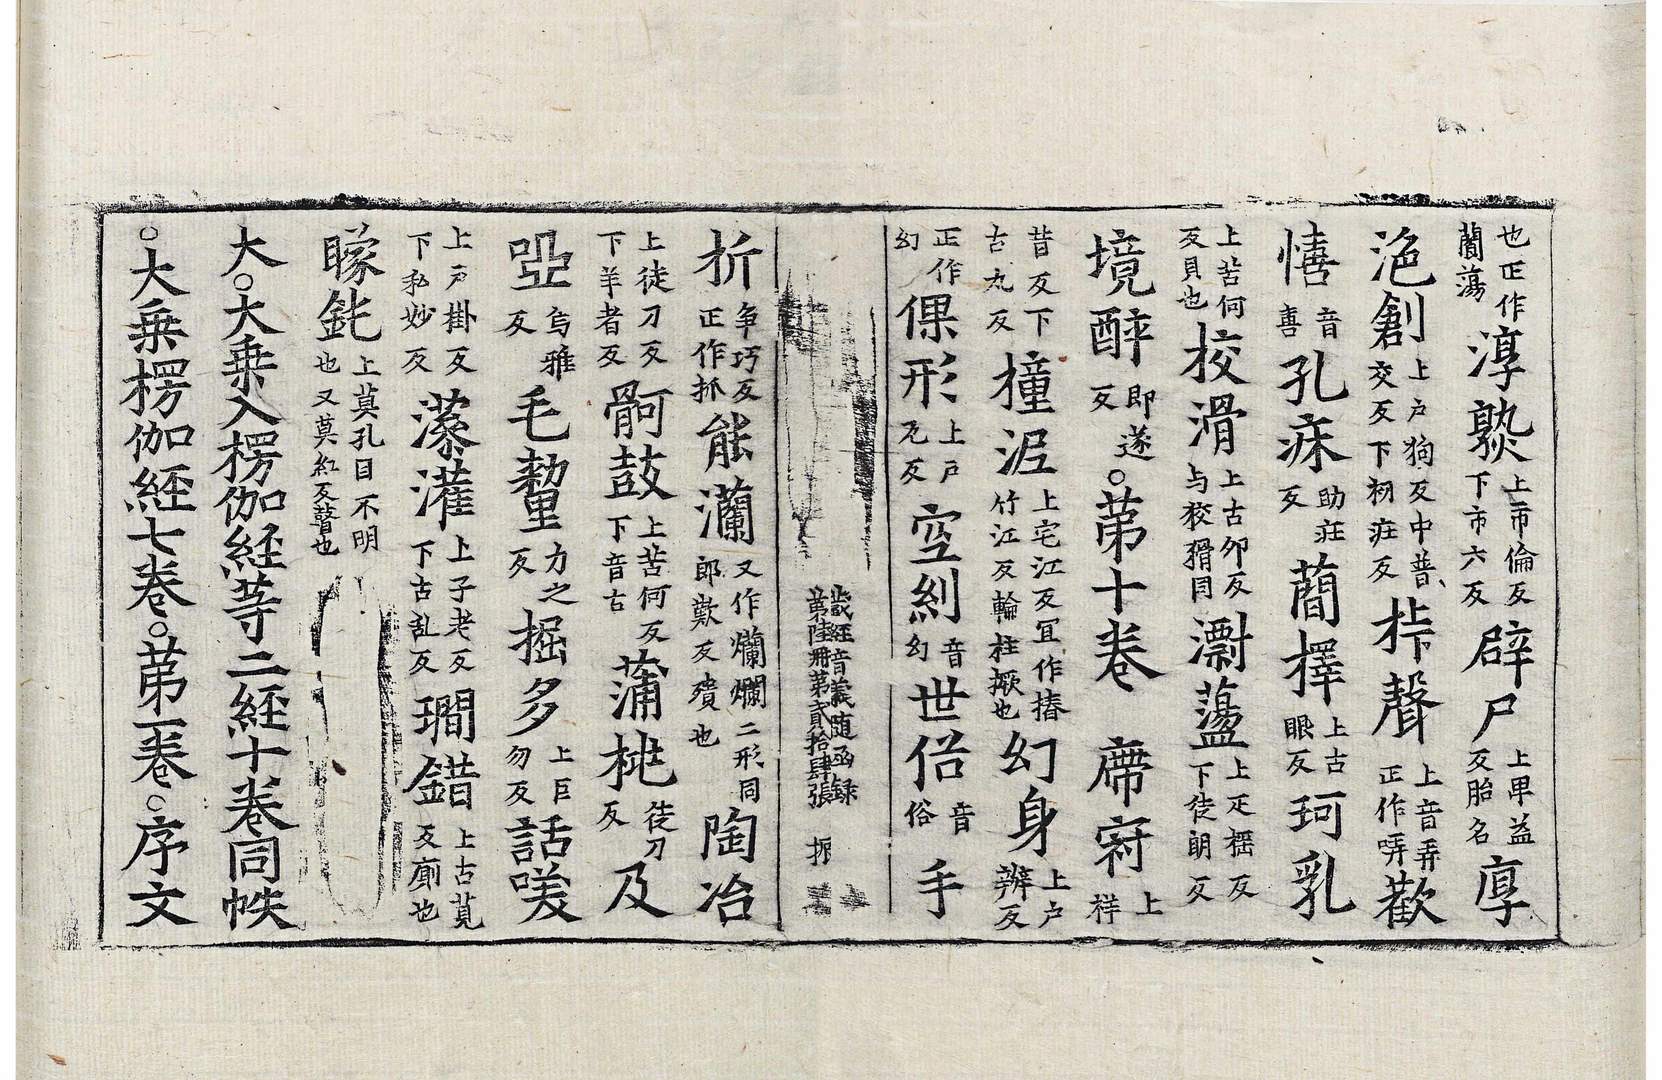 也正作藺蕩淳𤍨上市倫反下市六反辟尸上卑益反胎名㕂
浥創上戸狗反中普交反下初疰反㭓聲上音弄正作哢歡
憘音喜孔痳助疰反蕳擇上古眼反珂乳
上苦何反貝也挍滑上古夘反与狡猾同㶜蕩上疋揺反下徒朗反
境醉即遂反。苐十卷 廗窂上祥
昔反下古丸反撞㴂上宅江反冝作摏竹江反輪柱橛也幻身上戸辨反
正作幻倮形上戸瓦反空糿音幻世俗音俗手
藏經音義随函録第陸册第貳拾肆張
折争巧反正作抓能灡又作爛爛二形同郎歎反殨也陶冶
上徒刀反下羊者反䯊鼓上苦何反下音古蒲桃徒刀反及
啞烏雅反毛㹈力之反掘多上巨勿反話𠴰
上戸掛反下私妙反藻灌上子老反下古乱反瓓錯上古莧反廁也
矇鈋上莫孔目不明也又莫紅反瞽也
大。大乗入楞伽経等二経十卷同帙
。大乗楞伽経七卷。苐一卷。序文